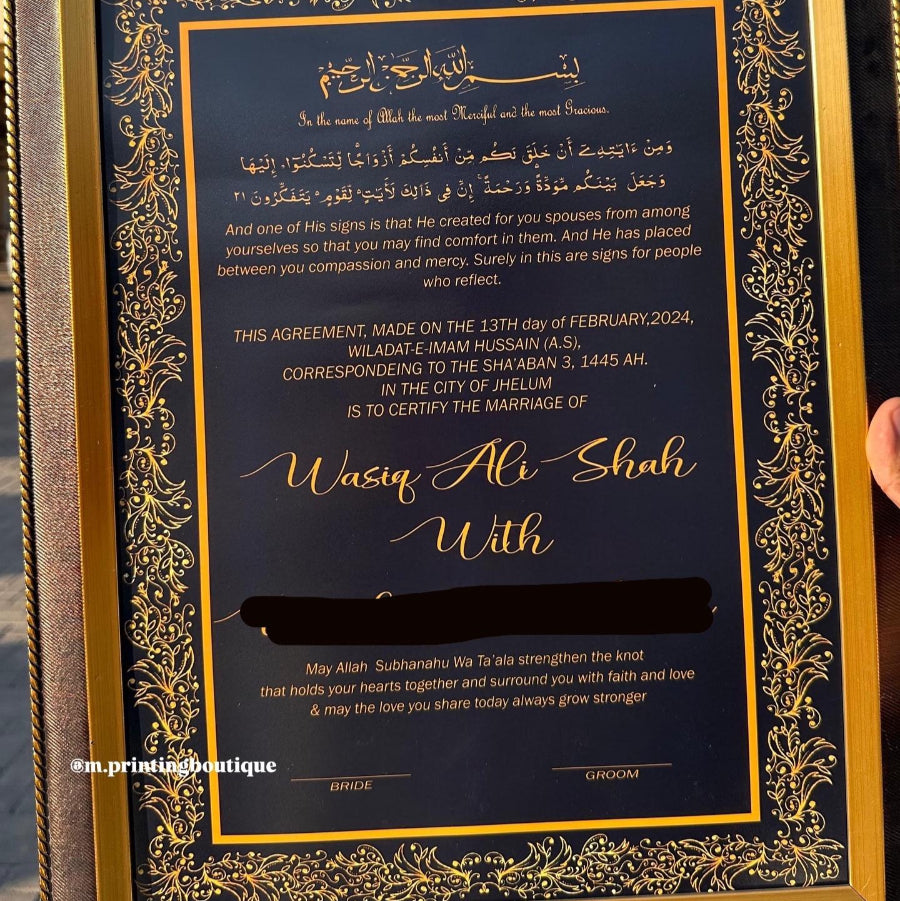 بِسْمِ اللَّهِ الرَّحْمَٰنِ الرَّحِيمِ
In the name of Allah the most Merciful and the most Gracious.
وَمِنْ ءَايَـٰتِهِۦٓ أَنْ خَلَقَ لَكُم مِّنْ أَنفُسِكُمْ أَزْوَٰجًا لِّتَسْكُنُوٓا۟ إِلَيْهَا
وَجَعَلَ بَيْنَكُم مَّوَدَّةً وَرَحْمَةً ۚ إِنَّ فِى ذَٰلِكَ لَـَٔايَـٰتٍ لِّقَوْمٍ يَتَفَكَّرُونَ ٢١
And one of His signs is that He created for you spouses from among
yourselves so that you may find comfort in them. And He has placed
between you compassion and mercy. Surely in this are signs for people
who reflect.
THIS AGREEMENT, MADE ON THE 13TH day of FEBRUARY,2024,
WILADAT-E-IMAM HUSSAIN (A.S),
CORRESPONDEING TO THE SHA'ABAN 3, 1445 AH.
IN THE CITY OF JHELUM
IS TO CERTIFY THE MARRIAGE OF
Wasiq Ali Shah
With
May Allah Subhanahu Wa Ta'ala strengthen the knot
that holds your hearts together and surround you with faith and love
& may the love you share today always grow stronger
@m.printingboutique
BRIDE
GROOM